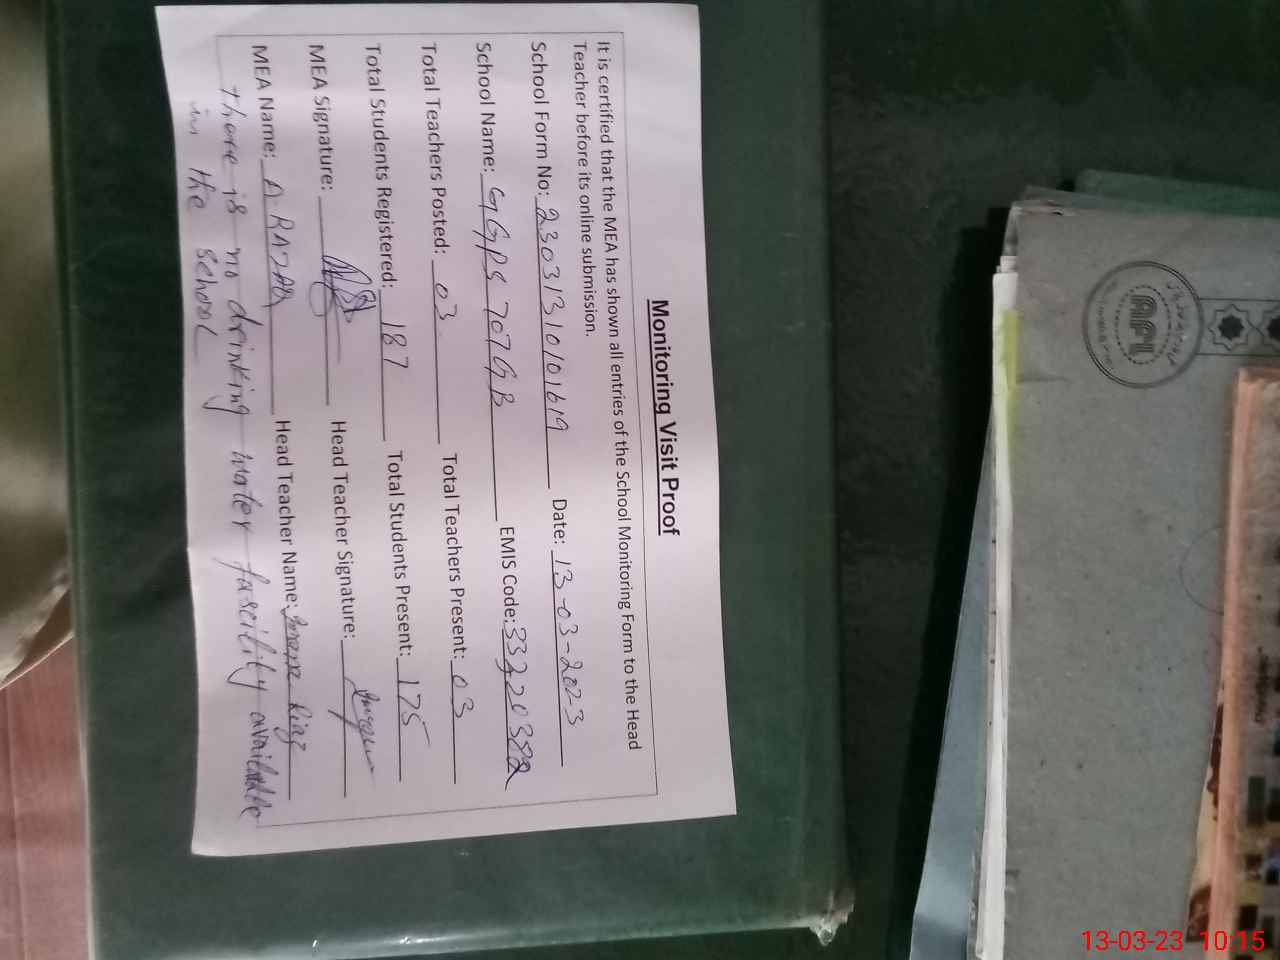 Monitoring Visit Proof
It is certified that the MEA has shown all entries of the School Monitoring Form to the Head
Teacher before its online submission.
School Form No: 23031310101619 Date: 13-03-2023
School Name: GGPS 707GB EMIS Code: 33220382
Total Teachers Posted: 03 Total Teachers Present: 03
Total Students Registered: 187 Total Students Present: 175
MEA Signature: Head Teacher Signature:
MEA Name: Head Teacher Name: Riaz
There is no drinking water fascility available
in the school
API
13-03-23 10:15